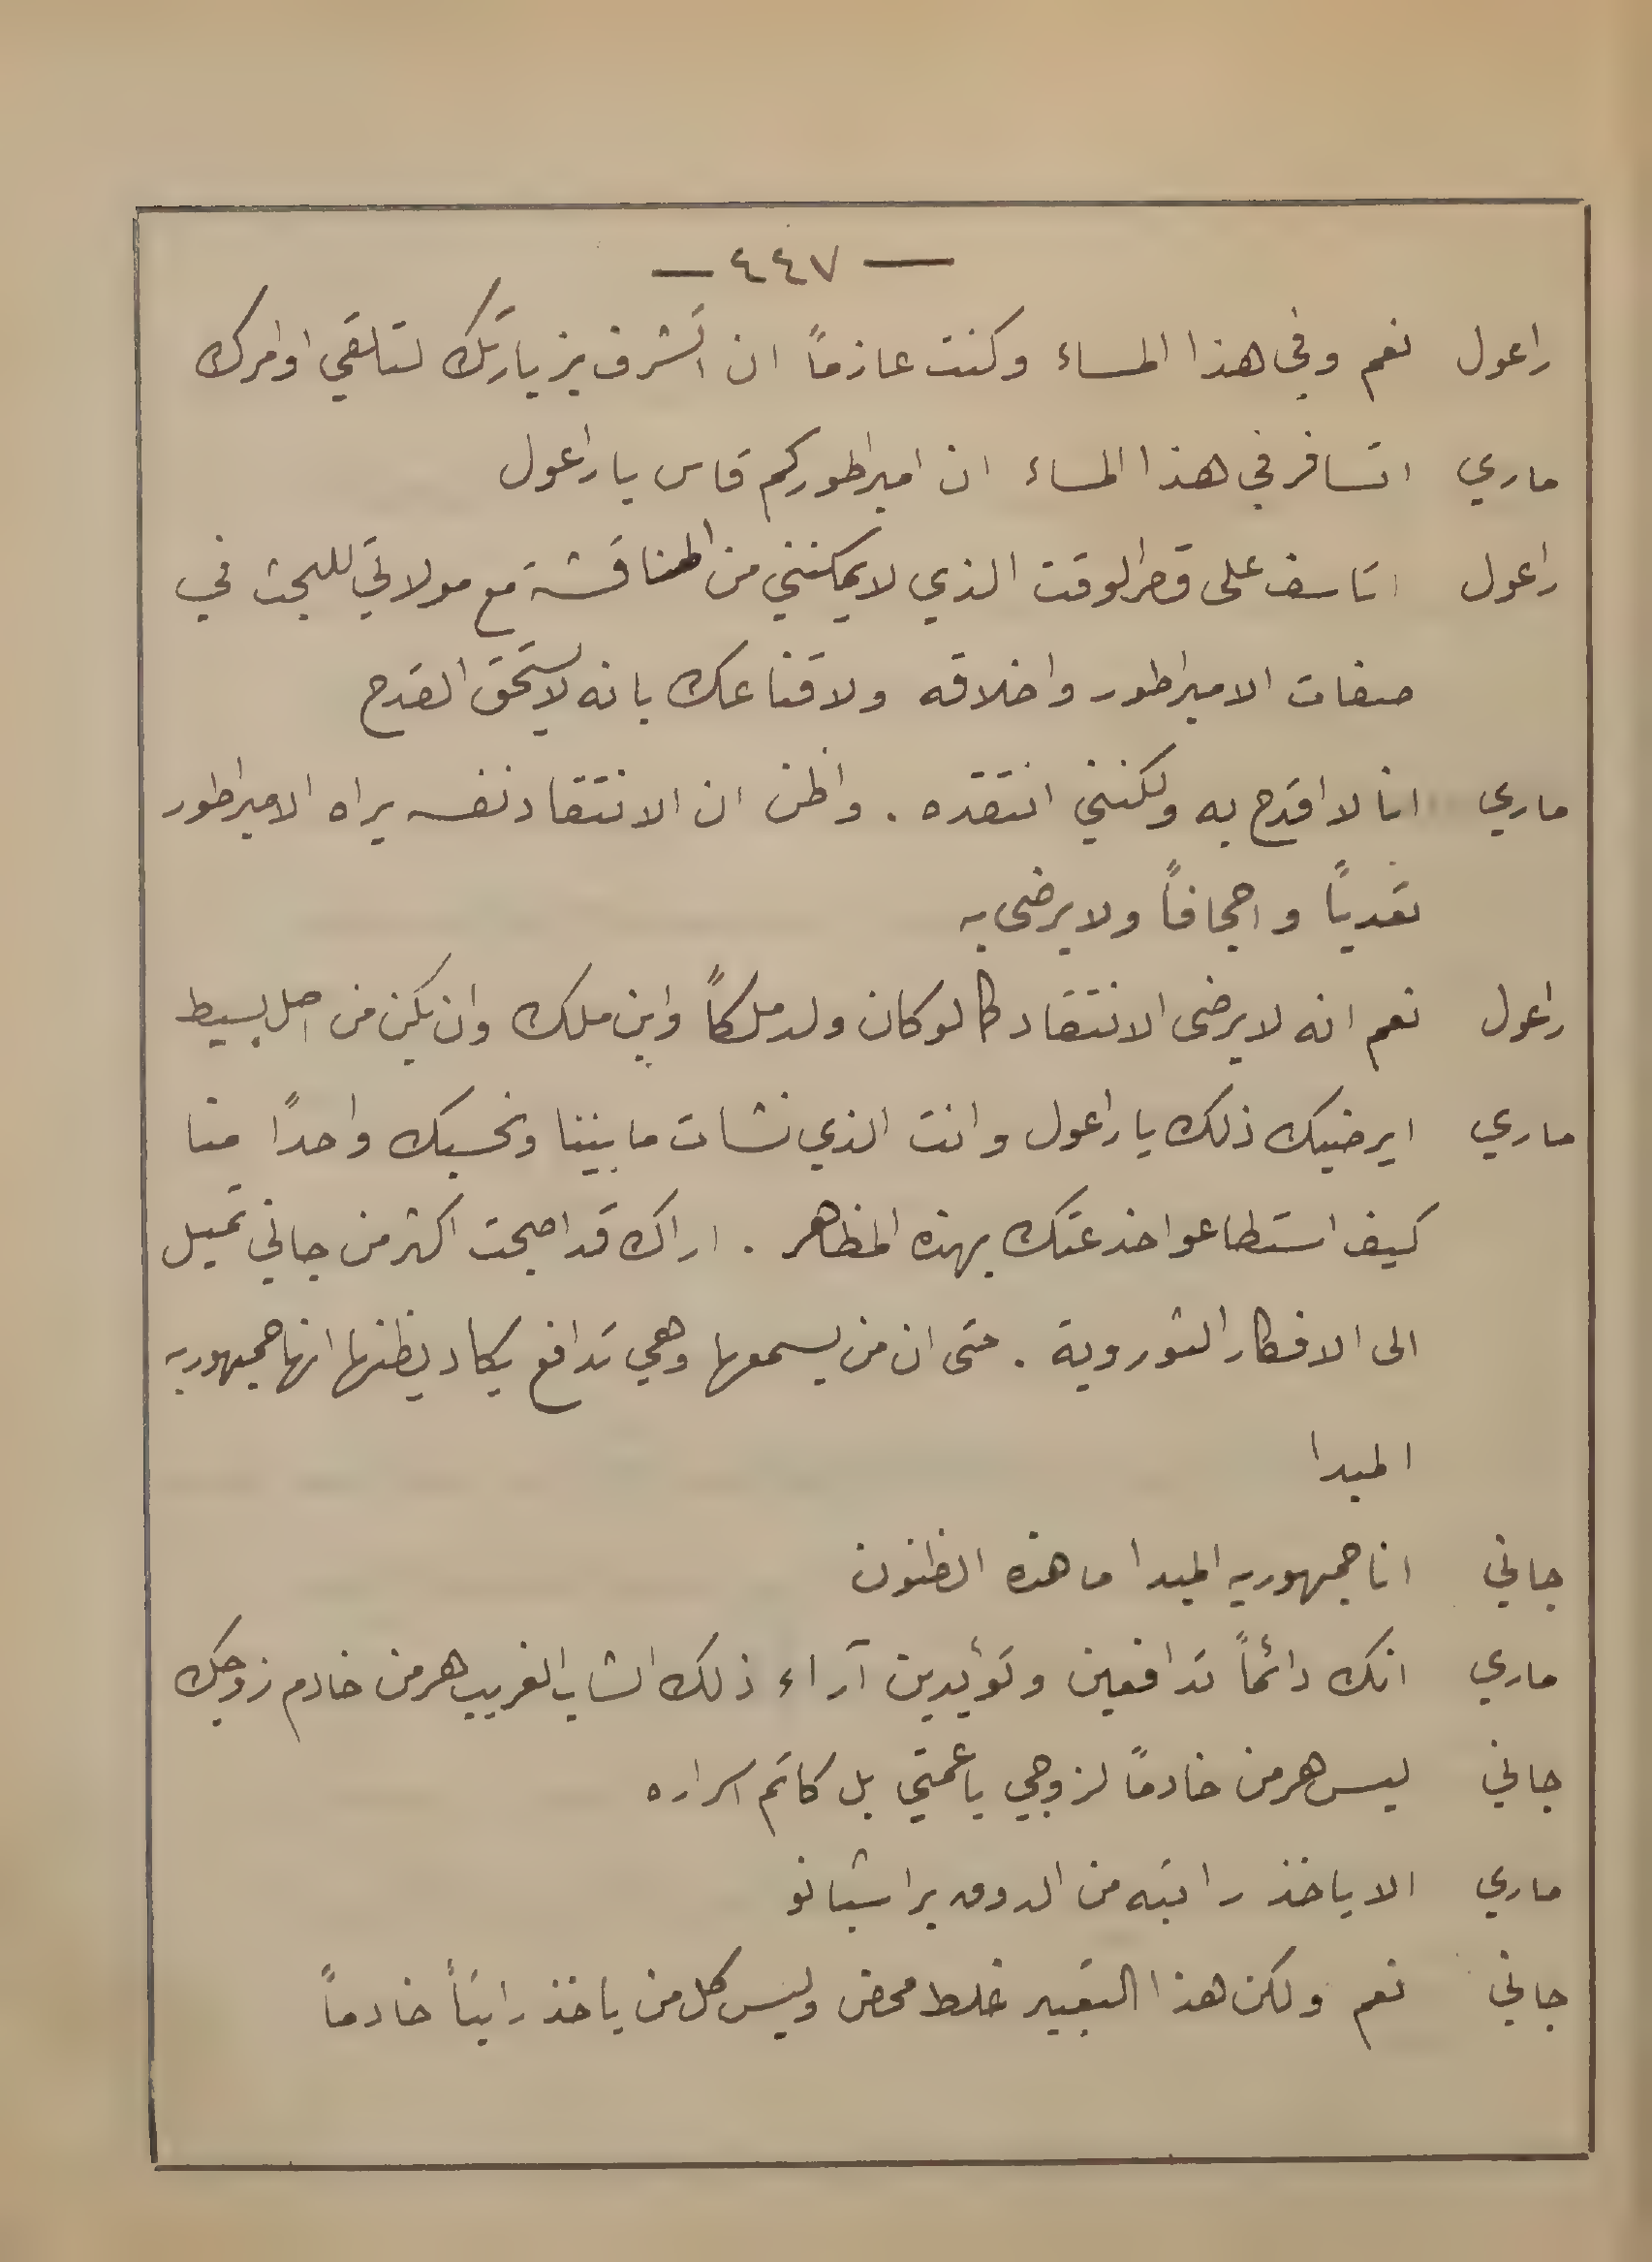 — ٤٤٧ —
راعول نعم وفي هذا المساء وكنت عازماً ان اتشرف بزيارتك لتلقي اوامرك
ماري اتسافر في هذا المساء ان امبراطوركم قاس يا راعول
راعول اتاسف على قصر الوقت الذي لا يمكنني من المناقشة مع مولاتي للبحث في
صفات الامبراطور واخلاقه ولاقناعك بانه لا يستحق القدح
ماري انا لا اقدح به ولكنني انتقده . واظن ان الانتقاد نفسه يراه الامبراطور
تعدياً واجحافاً ولا يرضى به
راعول نعم انه لا يرضى الانتقاد كما لو كان ولد ملكاً وابن ملك وان يكن من اصل بسيط
ماري ايرضيك ذلك يا راعول وانت الذي نشات ما بيننا ونحسبك واحداً منا
كيف استطاعوا خدعتك بهذه المظاهر . اراك قد اصبحت اكثر من جاني تميل
الى الافكار الثوروية . حتى ان من يسمعها وهي تدافع يكاد يظنها انها جمهوريه
المبدا
جاني انا جمهوريه المبدا ما هذه الظنون
ماري انك دائماً تدافعين وتؤيدين آراء ذلك الشاب الغريب هرمن خادم زوجك
جاني ليس هرمن خادماً لزوجي يا عمتي بل كاتم اسراره
ماري الا ياخذ راتبه من الدوق براشيانو
جاني نعم ولكن هذا التعبير غلط محض وليس كل من ياخذ راتباً خادماً